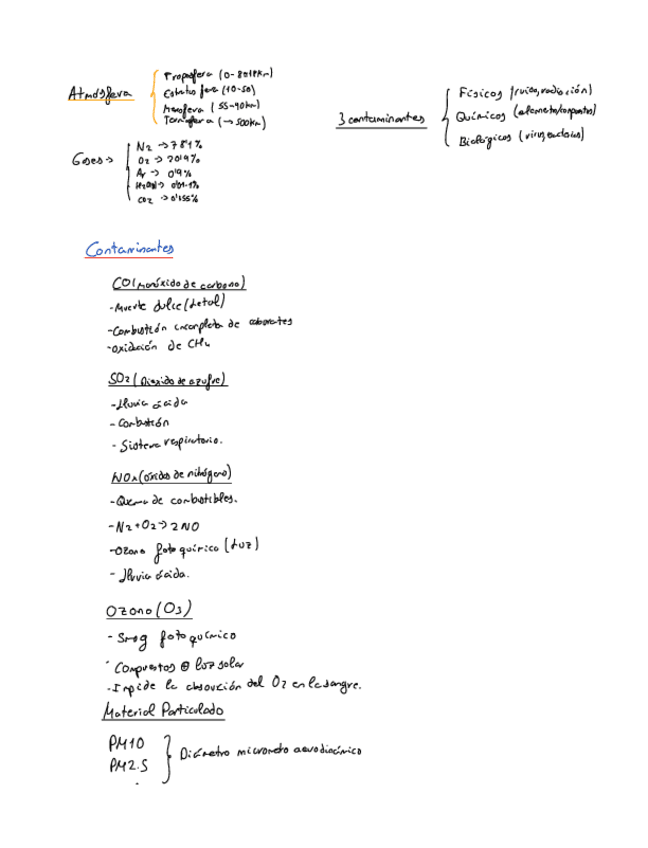 Atmósfera
Troposfera (0-8018km)
Estratosfera (10-50)
Mesosfera (55-90km)
Termosfera (→ 500km)
3 contaminantes
Físicos (ruido, radiación)
Químicos (elemento/compuestos)
Biológicos (virus,
Gases →
N2 → 78'1%
O2 → 20'9%
Ar → 0'9%
→ 0'01-1%
CO2 → 0'355%
Contaminantes
CO (monóxido de carbono)
-Muerte dulce (Letal)
-Combustión incompleta de
-oxidación de CH4
SO2 (Dióxido de azufre)
-Lluvia ácida
-Combustión
-Sistema respiratorio.
NOx (óxidos de nitrógeno)
-Quema de combustibles.
-N2+O2→2NO
-Ozono fotoquímico (Luz)
-Lluvia ácida.
Ozono (O3)
-Smog fotoquímico
-Compuestos ⊕ luz solar
-Impide la absorción del O2 en la sangre.
Material Particulado
PM10
PM2.5
Diámetro micrometro aerodinámico